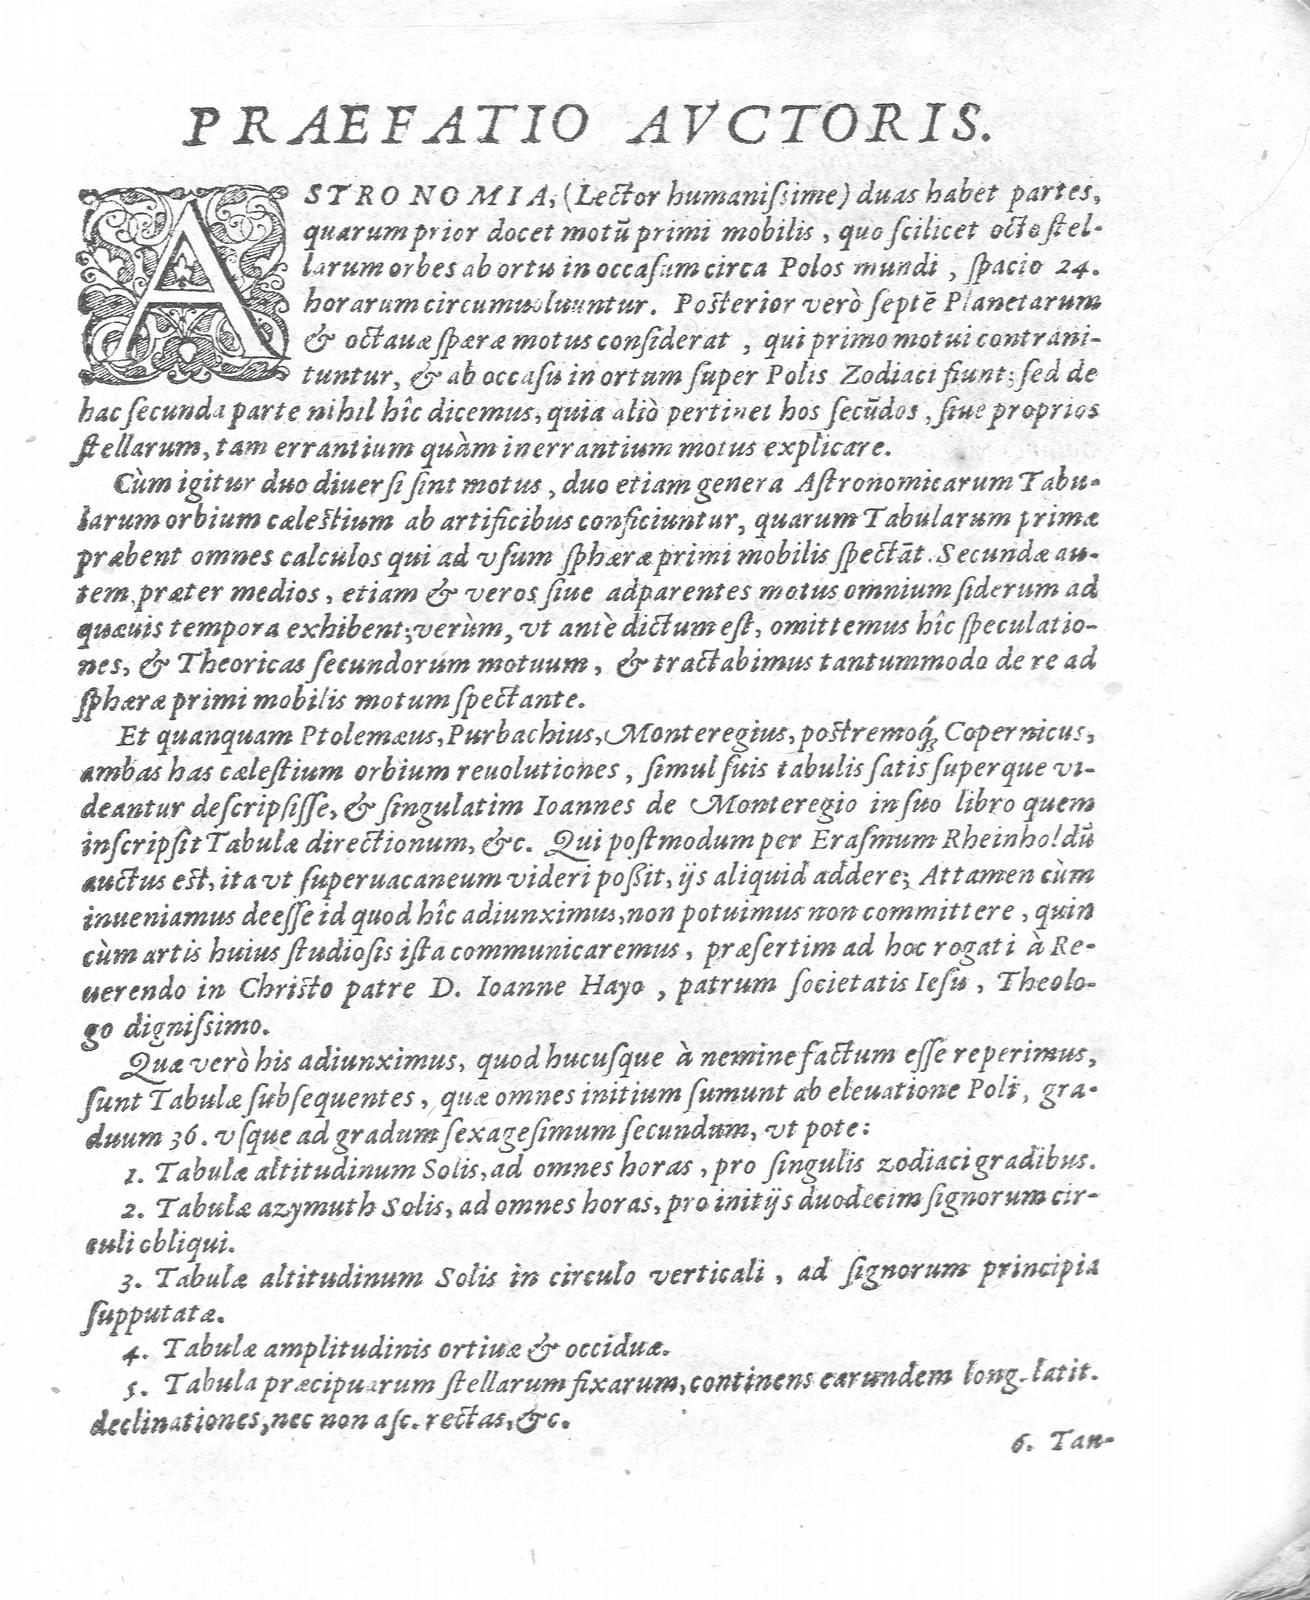 PRAEFATIO AVCTORIS.
ASTRONOMIA, (Lector humaniſsime) duas habet partes,
quarum prior docet motū primi mobilis, quo ſcilicet octo ſtel-
larum orbes ab ortu in occaſum circa Polos mundi, ſpacio 24.
horarum circumuoluuntur. Poſterior verò ſeptē Planetarum
& octauæ ſpæræ motus conſiderat, qui primo motui contrani-
tuntur, & ab occaſu in ortum ſuper Polis Zodiaci fiunt; ſed de
hac ſecunda parte nihil hîc dicemus, quia aliò pertinet hos ſecūdos, ſiue proprios
ſtellarum, tam errantium quàm inerrantium motus explicare.
Cùm igitur duo diuerſi ſint motus, duo etiam genera Aſtronomicarum Tabu-
larum orbium cæleſtium ab artificibus conficiuntur, quarum Tabularum primæ
præbent omnes calculos qui ad vſum ſphæræ primi mobilis ſpectāt. Secundæ au-
tem præter medios, etiam & veros ſiue adparentes motus omnium ſiderum ad
quæuis tempora exhibent; verùm, vt antè dictum eſt, omittemus hîc ſpeculatio-
nes, & Theoricas ſecundorum motuum, & tractabimus tantummodo de re ad
ſphæræ primi mobilis motum ſpectante.
Et quanquam Ptolemæus, Purbachius, Monteregius, poſtremoq́; Copernicus,
ambas has cæleſtium orbium reuolutiones, ſimul ſuis tabulis ſatis ſuperque vi-
deantur deſcripſiſſe, & ſingulatim Ioannes de Monteregio in ſuo libro quem
inſcripſit Tabulæ directionum, &c. Qui poſtmodum per Eraſmum Rheinholdū
auctus eſt, ita vt ſuperuacaneum videri poßit, ijs aliquid addere; Attamen cùm
inueniamus deeſſe id quod hîc adiunximus, non potuimus non committere, quin
cùm artis huius ſtudioſis iſta communicaremus, præſertim ad hoc rogati à Re-
uerendo in Chriſto patre D. Ioanne Hayo, patrum ſocietatis Ieſu, Theolo-
go digniſsimo.
Quæ verò his adiunximus, quod hucuſque à nemine factum eſſe reperimus,
ſunt Tabulæ ſubſequentes, quæ omnes initium ſumunt ab eleuatione Poli, gra-
duum 36. vſque ad gradum ſexageſimum ſecundum, vt pote:
1. Tabulæ altitudinum Solis, ad omnes horas, pro ſingulis zodiaci gradibus.
2. Tabulæ azymuth Solis, ad omnes horas, pro initijs duodecim ſignorum cir-
culi obliqui.
3. Tabulæ altitudinum Solis in circulo verticali, ad ſignorum principia
ſupputatæ.
4. Tabulæ amplitudinis ortiuæ & occiduæ.
5. Tabula præcipuarum ſtellarum fixarum, continens earundem long. latit.
declinationes, nec non aſc. rectas, &c.
6. Tan-